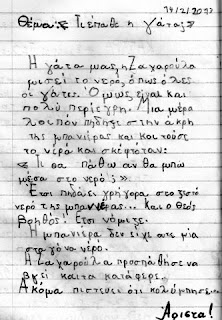 14/2/2012
Θέμα: «Τι έπαθε η γάτα;»
Η γάτα μας, η Ζαχαρούλα
μισεί το νερό, όπως όλες
οι γάτες. Όμως, είναι και
πολύ περίεργη. Μια μέρα
λοιπόν πήδηξε στην άκρη
της μπανιέρας και κοιτούσε
το νερό και σκεφτόταν:
– Τι θα πάθω αν θα μπω
μέσα στο νερό;
Έτσι πηδάει γρήγορα στο ζεστό
νερό της μπανιέρας. Και ο Θεός
βοηθός! Έτσι νόμιζε.
Η μπανιέρα δεν είχε ατε μια
σταγόνα νερό.
Η Ζαχαρούλα προσπάθησε να
βγει και τα κατάφερε.
Ακόμα πιστεύει ότι κολύμπησε...
Άριστα!